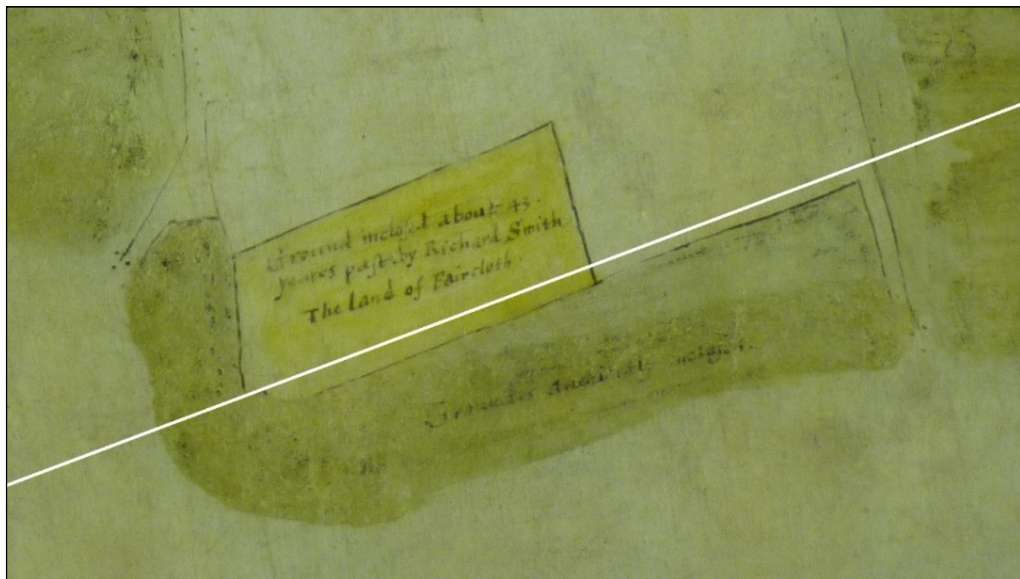 Ground inclosed about 43.
yeares past by Richard Smith
The land of Faircloth.
Groundes Aunciently inclosed.